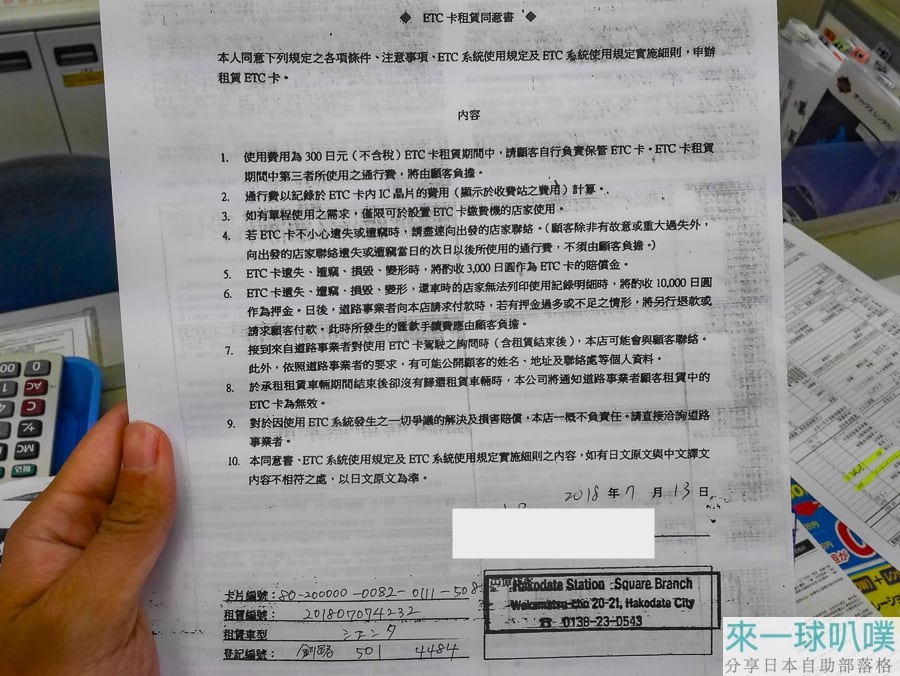 ◆ ETC 卡租賃同意書 ◆
本人同意下列規定之各項條件、注意事項、ETC 系統使用規定及 ETC 系統使用規定實施細則，申辦
租賃 ETC 卡。
內容
1. 使用費用為 300 日元（不含稅）ETC 卡租賃期間中，請顧客自行負責保管 ETC 卡。ETC 卡租賃
期間中第三者所使用之通行費，將由顧客負擔。
2. 通行費以記錄於 ETC 卡內 IC 晶片的費用（顯示於收費站之費用）計算。
3. 如有單程使用之需求，僅限可於設置 ETC 卡繳費機的店家使用。
4. 若 ETC 卡不小心遺失或遭竊時，請盡速向出發的店家聯絡。（顧客除非有故意或重大過失外，
向出發的店家聯絡遺失或遭竊當日的次日以後所使用的通行費，不須由顧客負擔。）
5. ETC 卡遺失、遭竊、損毀、變形時，將酌收 3,000 日圓作為 ETC 卡的賠償金。
6. ETC 卡遺失、遭竊、損毀、變形，還車時的店家無法列印使用記錄明細時，將酌收 10,000 日圓
作為押金。日後，道路事業者向本店請求付款時，若有押金過多或不足之情形，將另行退款或
請求顧客付款。此時所發生的匯款手續費應由顧客負擔。
7. 接到來自道路事業者對使用 ETC 卡駕駛之詢問時（含租賃結束後），本店可能會與顧客聯絡。
此外，依照道路事業者的要求，有可能公開顧客的姓名、地址及聯絡處等個人資料。
8. 於承租租賃車輛期間結束後卻沒有歸還租賃車輛時，本公司將通知道路事業者顧客租賃中的
ETC 卡為無效。
9. 對於因使用 ETC 系統發生之一切爭議的解決及損害賠償，本店一概不負責任。請直接洽詢道路
事業者。
10. 本同意書、ETC 系統使用規定及 ETC 系統使用規定實施細則之內容，如有日文原文與中文譯文
內容不相符之處，以日文原文為準。
2018 年 7 月 13 日
卡片編號：80-200000-0082-0111-508
租賃編號：201807074232
租賃車型 シエンタ
登記編號：釧路 501 4484
Hakodate Station Square Branch
Wakamatsu-cho 20-21, Hakodate City
☎ 0138-23-0543
來一球叭噗
分享日本自助部落格